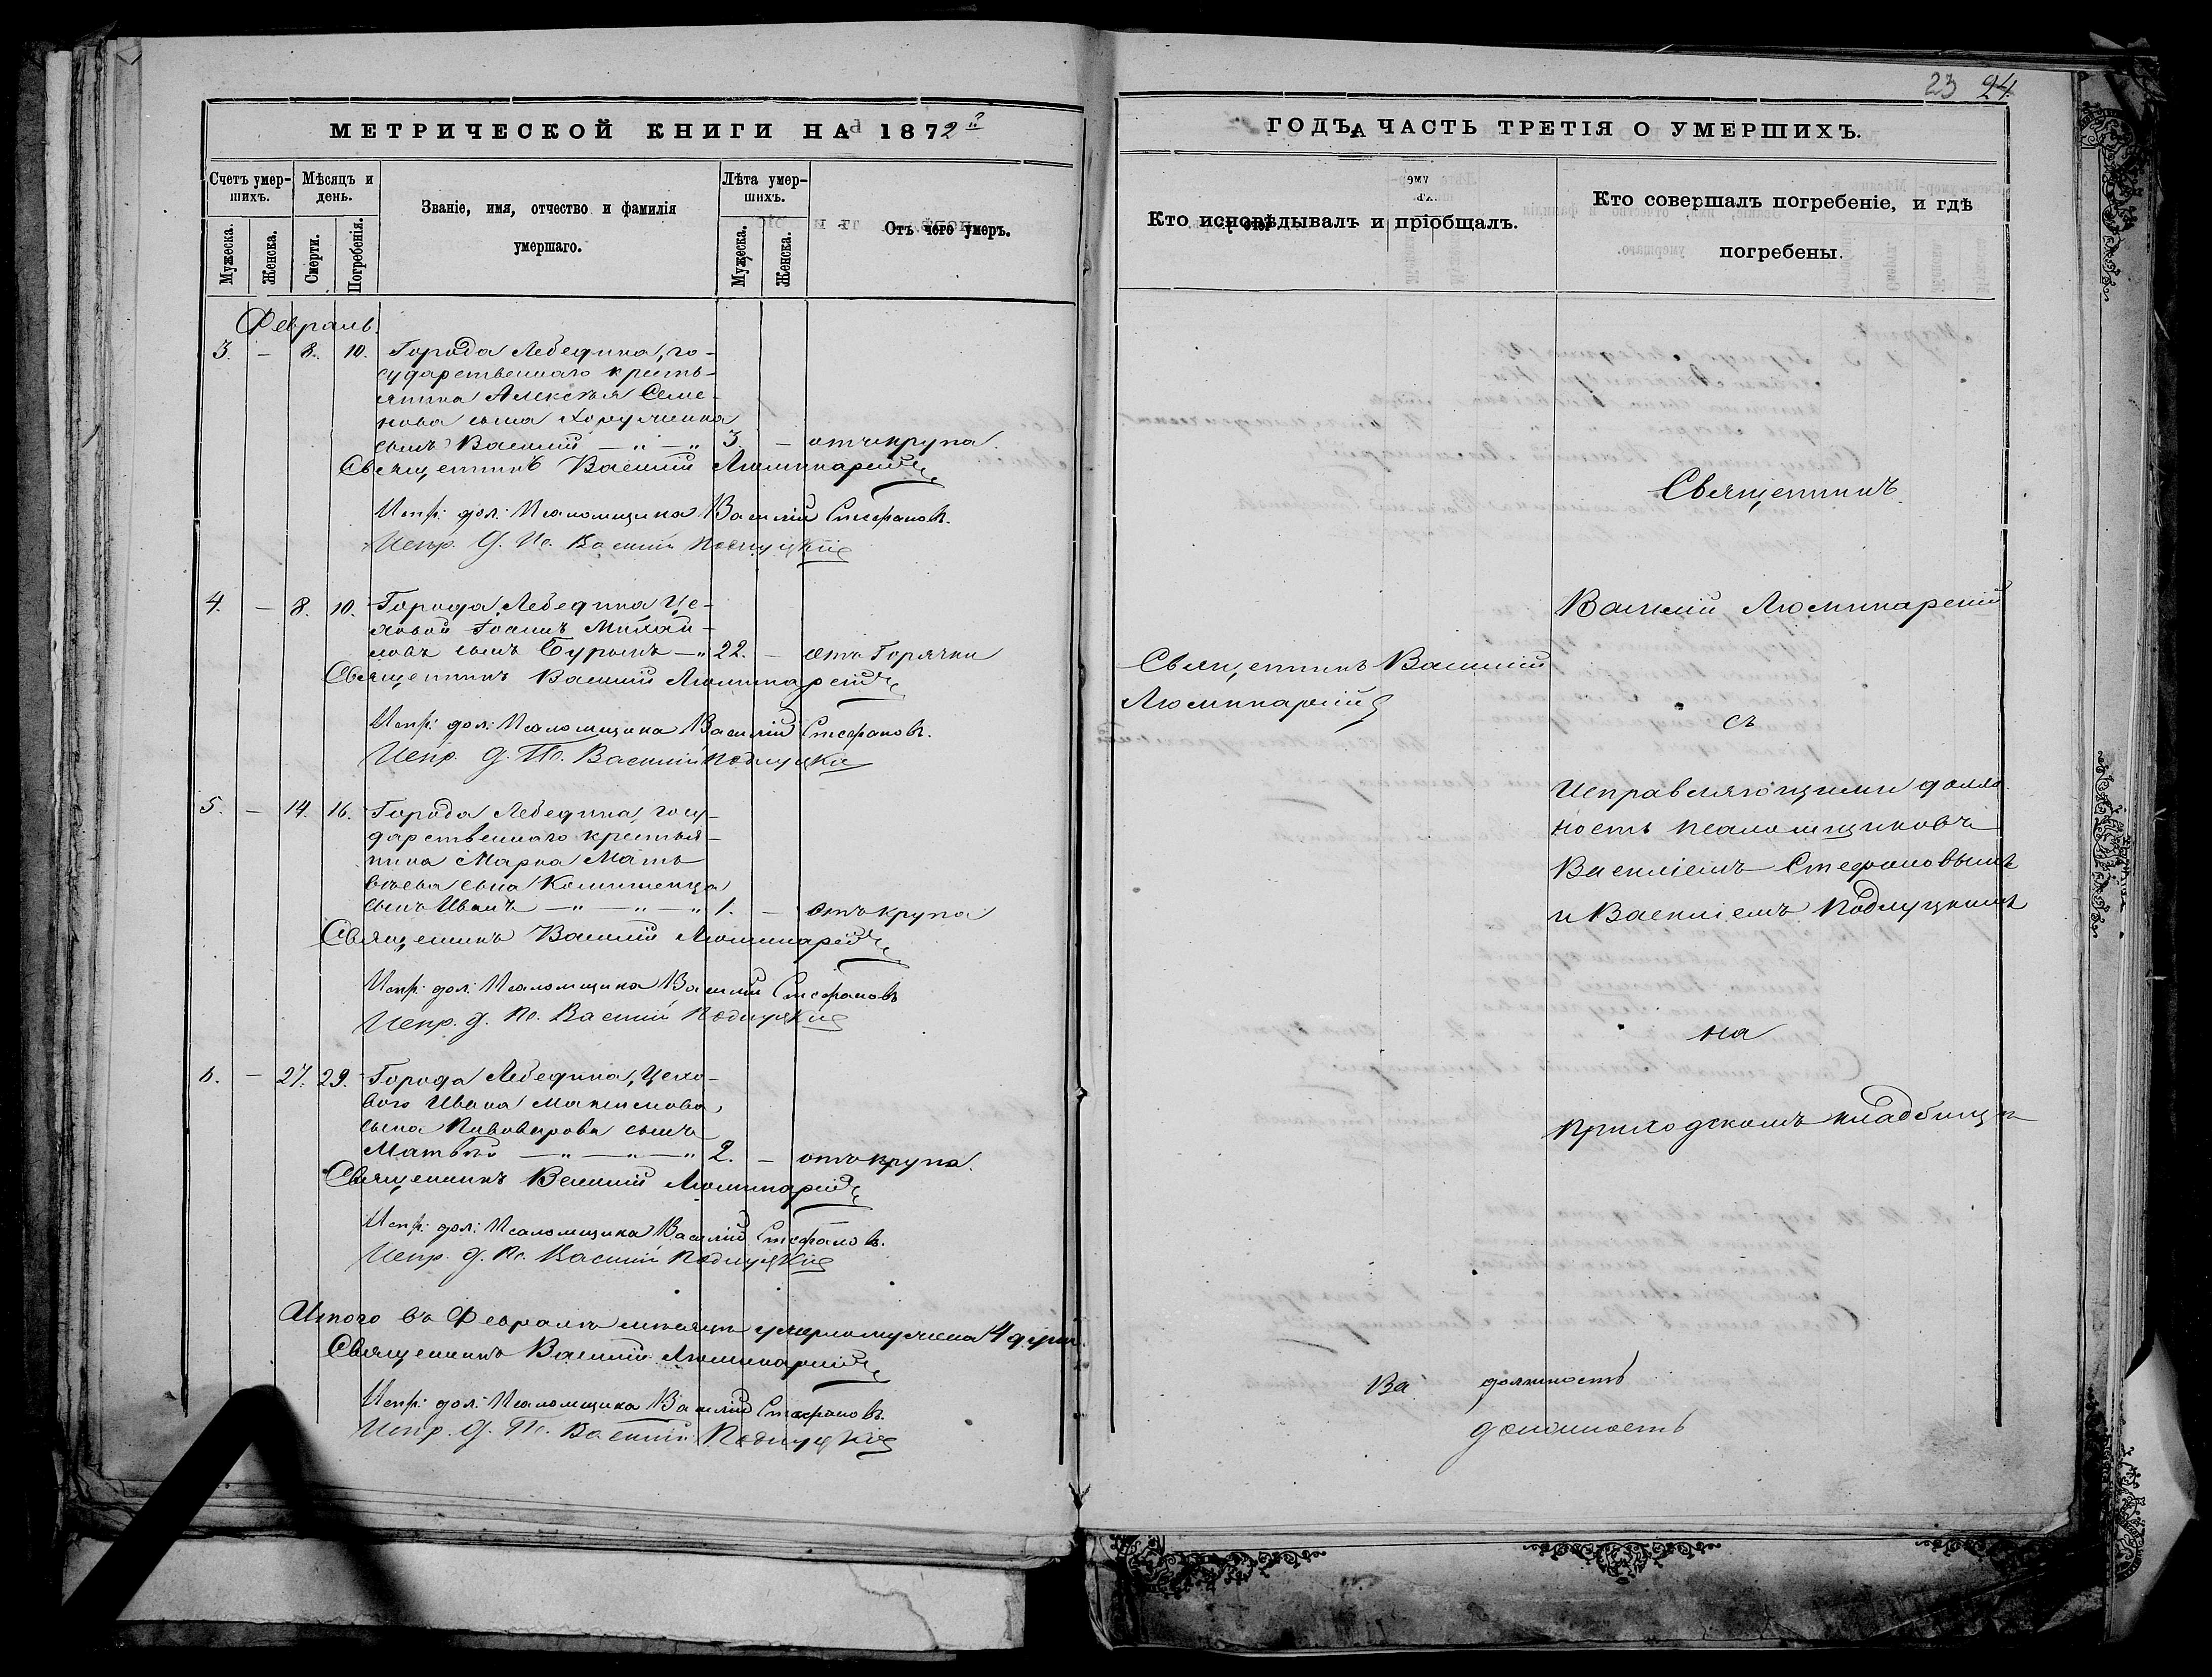 23 24
МЕТРИЧЕСКОЙ КНИГИ НА 1872й
ГОДЪ, ЧАСТЬ ТРЕТІЯ О УМЕРШИХЪ.
Счетъ умер-
шихъ.
Мужеска.
Женска.
Мѣсяцъ и
день.
Смерти.
Погребенія.
Званіе, имя, отчество и фамилія
умершаго.
Лѣта умер-
шихъ.
Мужеска.
Женска.
Отъ чего умеръ.
Кто исповѣдывалъ и пріобщалъ.
Кто совершалъ погребеніе, и гдѣ
погребены.
Февраль.
3. — 8. 10. Города Лебедина, го-
сударственнаго кресть-
янина Алексѣя Семе-
нова сына
сынъ Василій — " — " 3. — отъ крупа.
Священникъ Василій Люминарскій
Испр: дол: Псаломщика Василій Стефановъ.
Испр. д. Пс. Василій Подлуцкій
4. — 8. 10. Города Лебедина Це-
ховой Іоаннъ Михай-
ловъ сынъ Бурымъ — " 22. — отъ Горячки
Священникъ Василій Люминарскій
Испр: дол: Псаломщика Василій Стефановъ.
Испр. д. Пс. Василій Подлуцкій
5. — 14. 16. Города Лебедина, госу-
дарственнаго крестья-
нина Марка Мат-
вѣева сына
сынъ Иванъ — " — " — " 1. — отъ крупа
Священникъ Василій Люминарскій
Испр: дол: Псаломщика Василій Стефановъ
Испр. д. Пс. Василій Подлуцкій
6. — 27. 29. Города Лебедина, Цехо-
вого Ивана Максимова
сына Пивоварова сынъ
Матвѣй — " — " — " 2. — отъ крупа.
Священникъ Василій Люминарскій
Испр: дол: Псаломщика Василій Стефановъ.
Испр. д. Пс. Василій Подлуцкій
Итого въ Февралѣ мѣсяцѣ умерло мужеска 4 души.
Священникъ Василій Люминарскій
Испр: дол: Псаломщика Василій Стефановъ.
Испр. д. Пс. Василій Подлуцкій
Священникъ Василій
Люминарскій
Священникъ
Василій Люминарскій
съ
Исправляющими долж-
ность псаломщиковъ
Василіемъ Стефановымъ
и Василіемъ Подлуцкимъ
на
приходскомъ кладбищѣ
Ва должность
должность